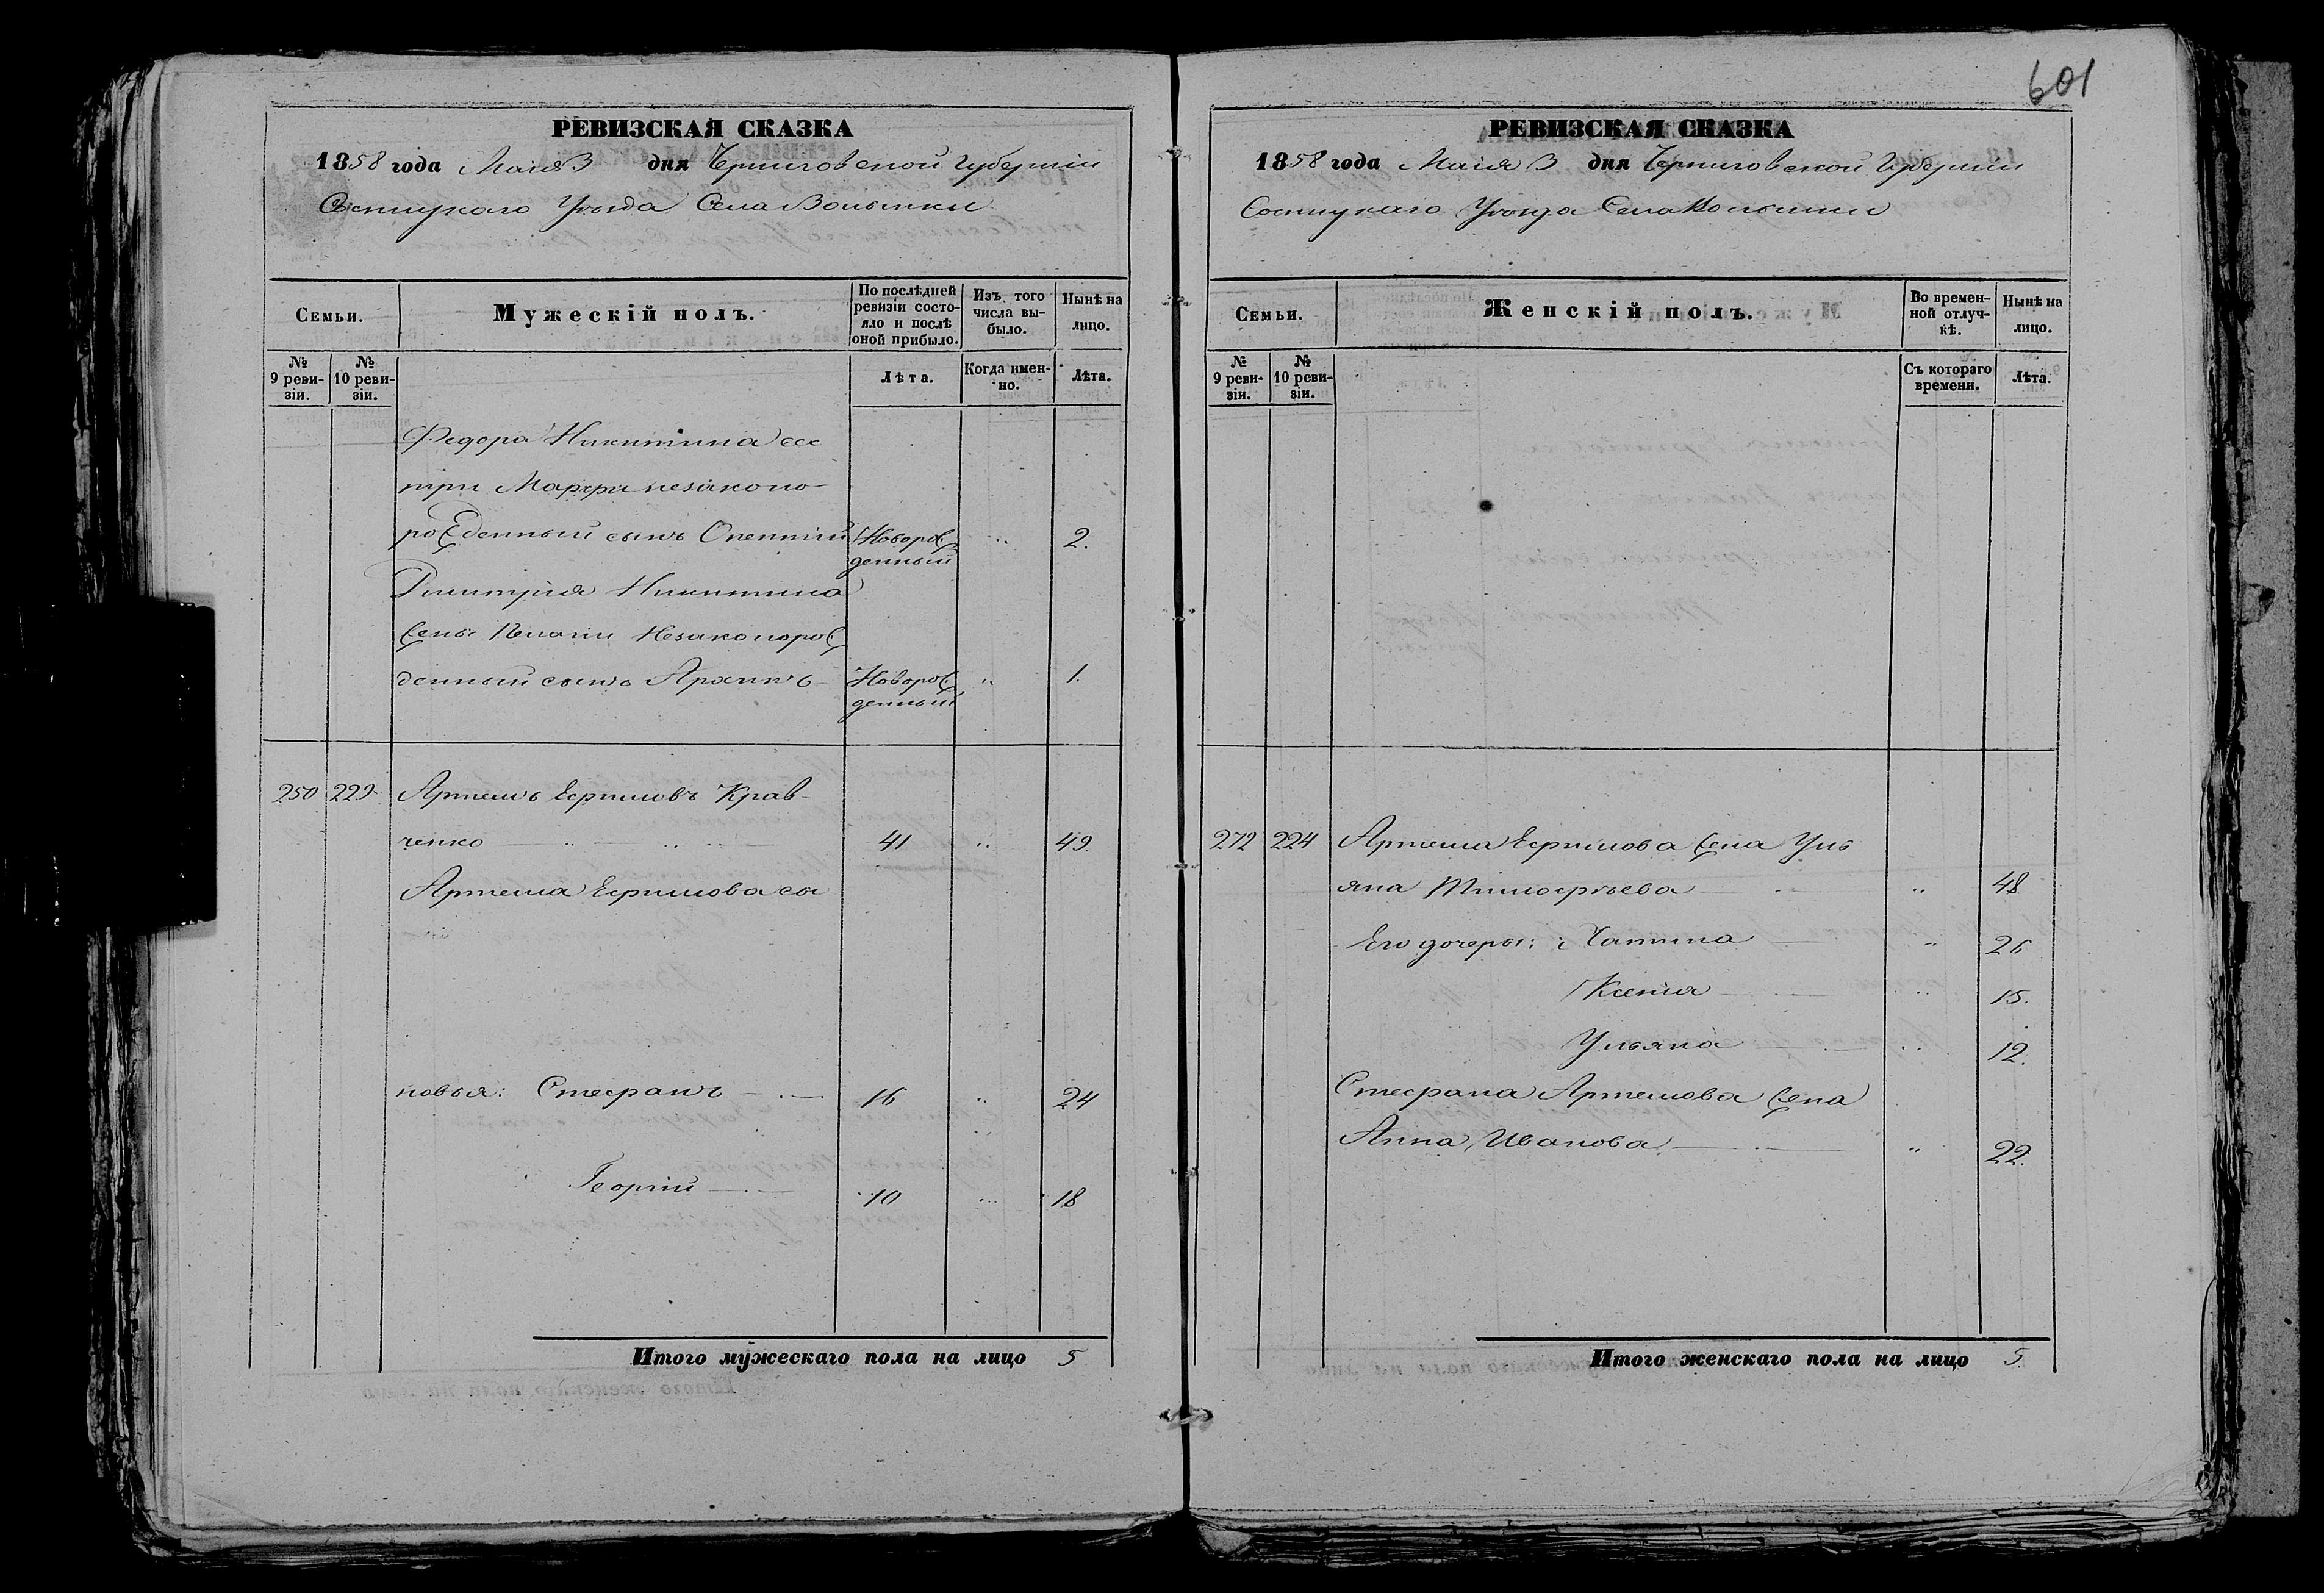 601
РЕВИЗСКАЯ СКАЗКА
1858 года Маія 3 дня Черниговской Губерніи
Сосницкаго Уѣзда Села Волынки
Семьи.
Мужескій полъ.
По послѣдней ревизіи состояло и послѣ оной прибыло.
Изъ того числа выбыло.
Нынѣ на лицо.
№ 9 ревизіи.
№ 10 ревизіи.
Лѣта.
Когда именно.
Лѣта.
Федора Никитина сес
три Марфи незаконо-
рожденный сынъ Новорож 2.
денный
Димитрія Никитина
жены Пелагіи Незаконорож
денный сынъ Архипъ Новорож 1.
денный
250 229 Артемъ Ефимовъ Крав-
ченко 41 49.
Артема Ефимова сы
новья: Стефанъ 16 24
Георгій 10 18
Итого мужескаго пола на лицо 5
РЕВИЗСКАЯ СКАЗКА
1858 года Маія 3 дня Черниговской Губерніи
Сосницкаго Уѣзда Села Волынки
Семьи.
Женскій полъ.
Во временной отлучкѣ.
Нынѣ на лицо.
№ 9 ревизіи.
№ 10 ревизіи.
Съ котораго времени.
Лѣта.
272 224 Артема Ефимова жена Уль
яна Тимофѣева 48
Его дочеры: 26
Ксенія 15.
Ульяна 12.
Стефана Артемова жена
Анна Иванова 22.
Итого женскаго пола на лицо 5.